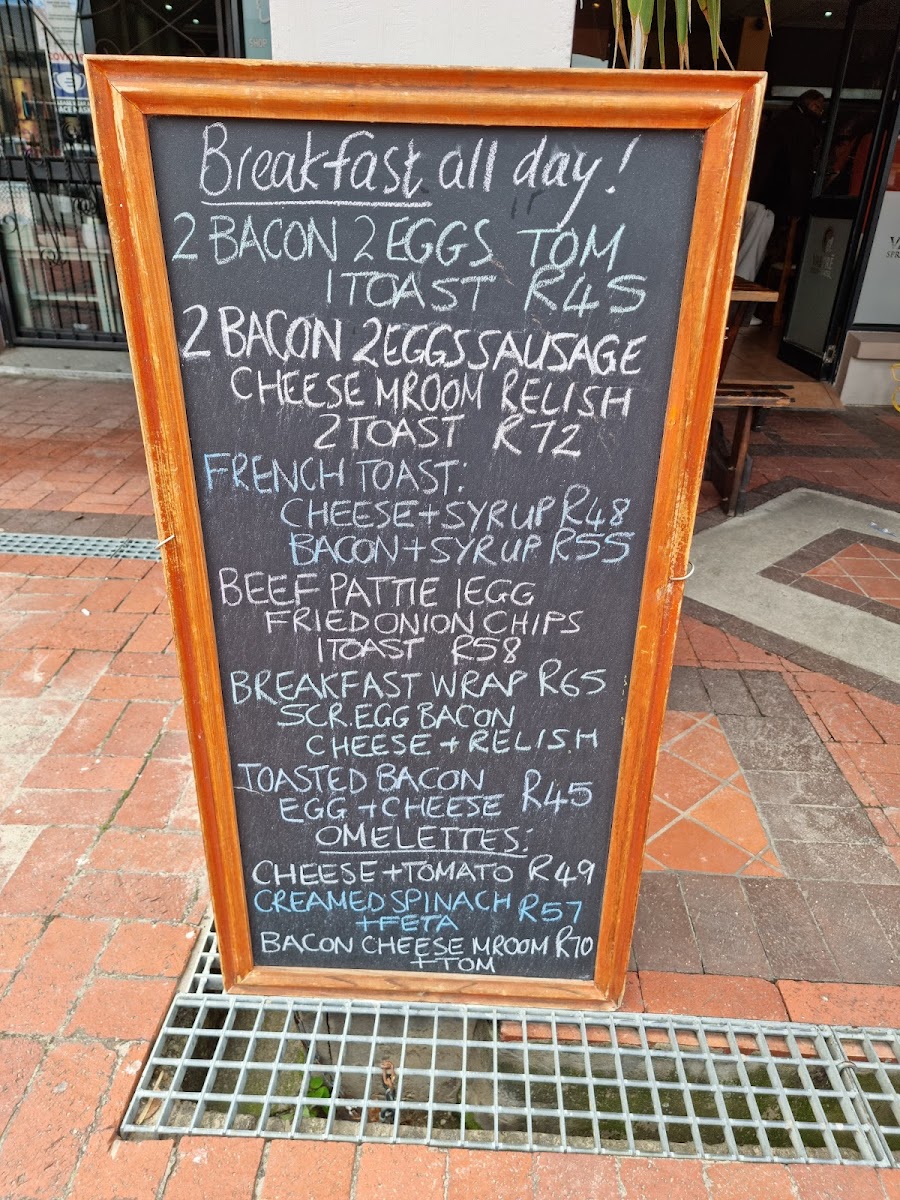 Breakfast all day!
2 BACON 2 EGGS TOM
1 TOAST R45
2 BACON 2 EGGS SAUSAGE
CHEESE MROOM RELISH
2 TOAST R72
FRENCH TOAST:
CHEESE + SYRUP R48
BACON + SYRUP R55
BEEF PATTIE 1 EGG
FRIED ONION CHIPS
1 TOAST R58
BREAKFAST WRAP R65
SCR. EGG BACON
CHEESE + RELISH
TOASTED BACON
EGG + CHEESE R45
OMELETTES:
CHEESE + TOMATO R49
CREAMED SPINACH R57
+ FETA
BACON CHEESE MROOM R70
+ TOM